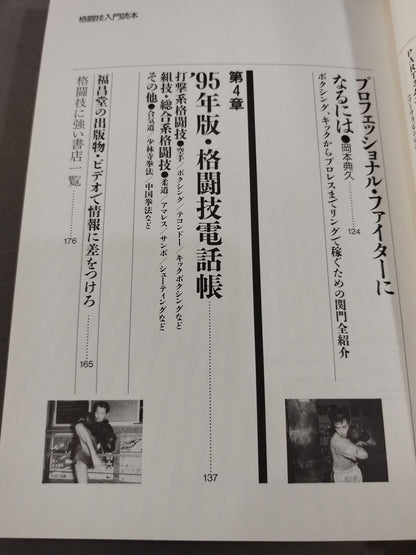 格闘技入門読本
プロフェッショナル・ファイターに
なるには●岡本典久
124
ボクシング、キックからプロレスまでリングで稼ぐための関門全紹介
第4章
'95年版・格闘技電話帳
137
打撃系格闘技●空手／ボクシング／テコンドー／キックボクシングなど
組技・総合系格闘技●柔道／アマレス／サンボ／シューティングなど
その他●合気道／少林寺拳法／中国拳法など
福昌堂の出版物・ビデオで情報に差をつけろ
165
格闘技に強い書店一覧
176